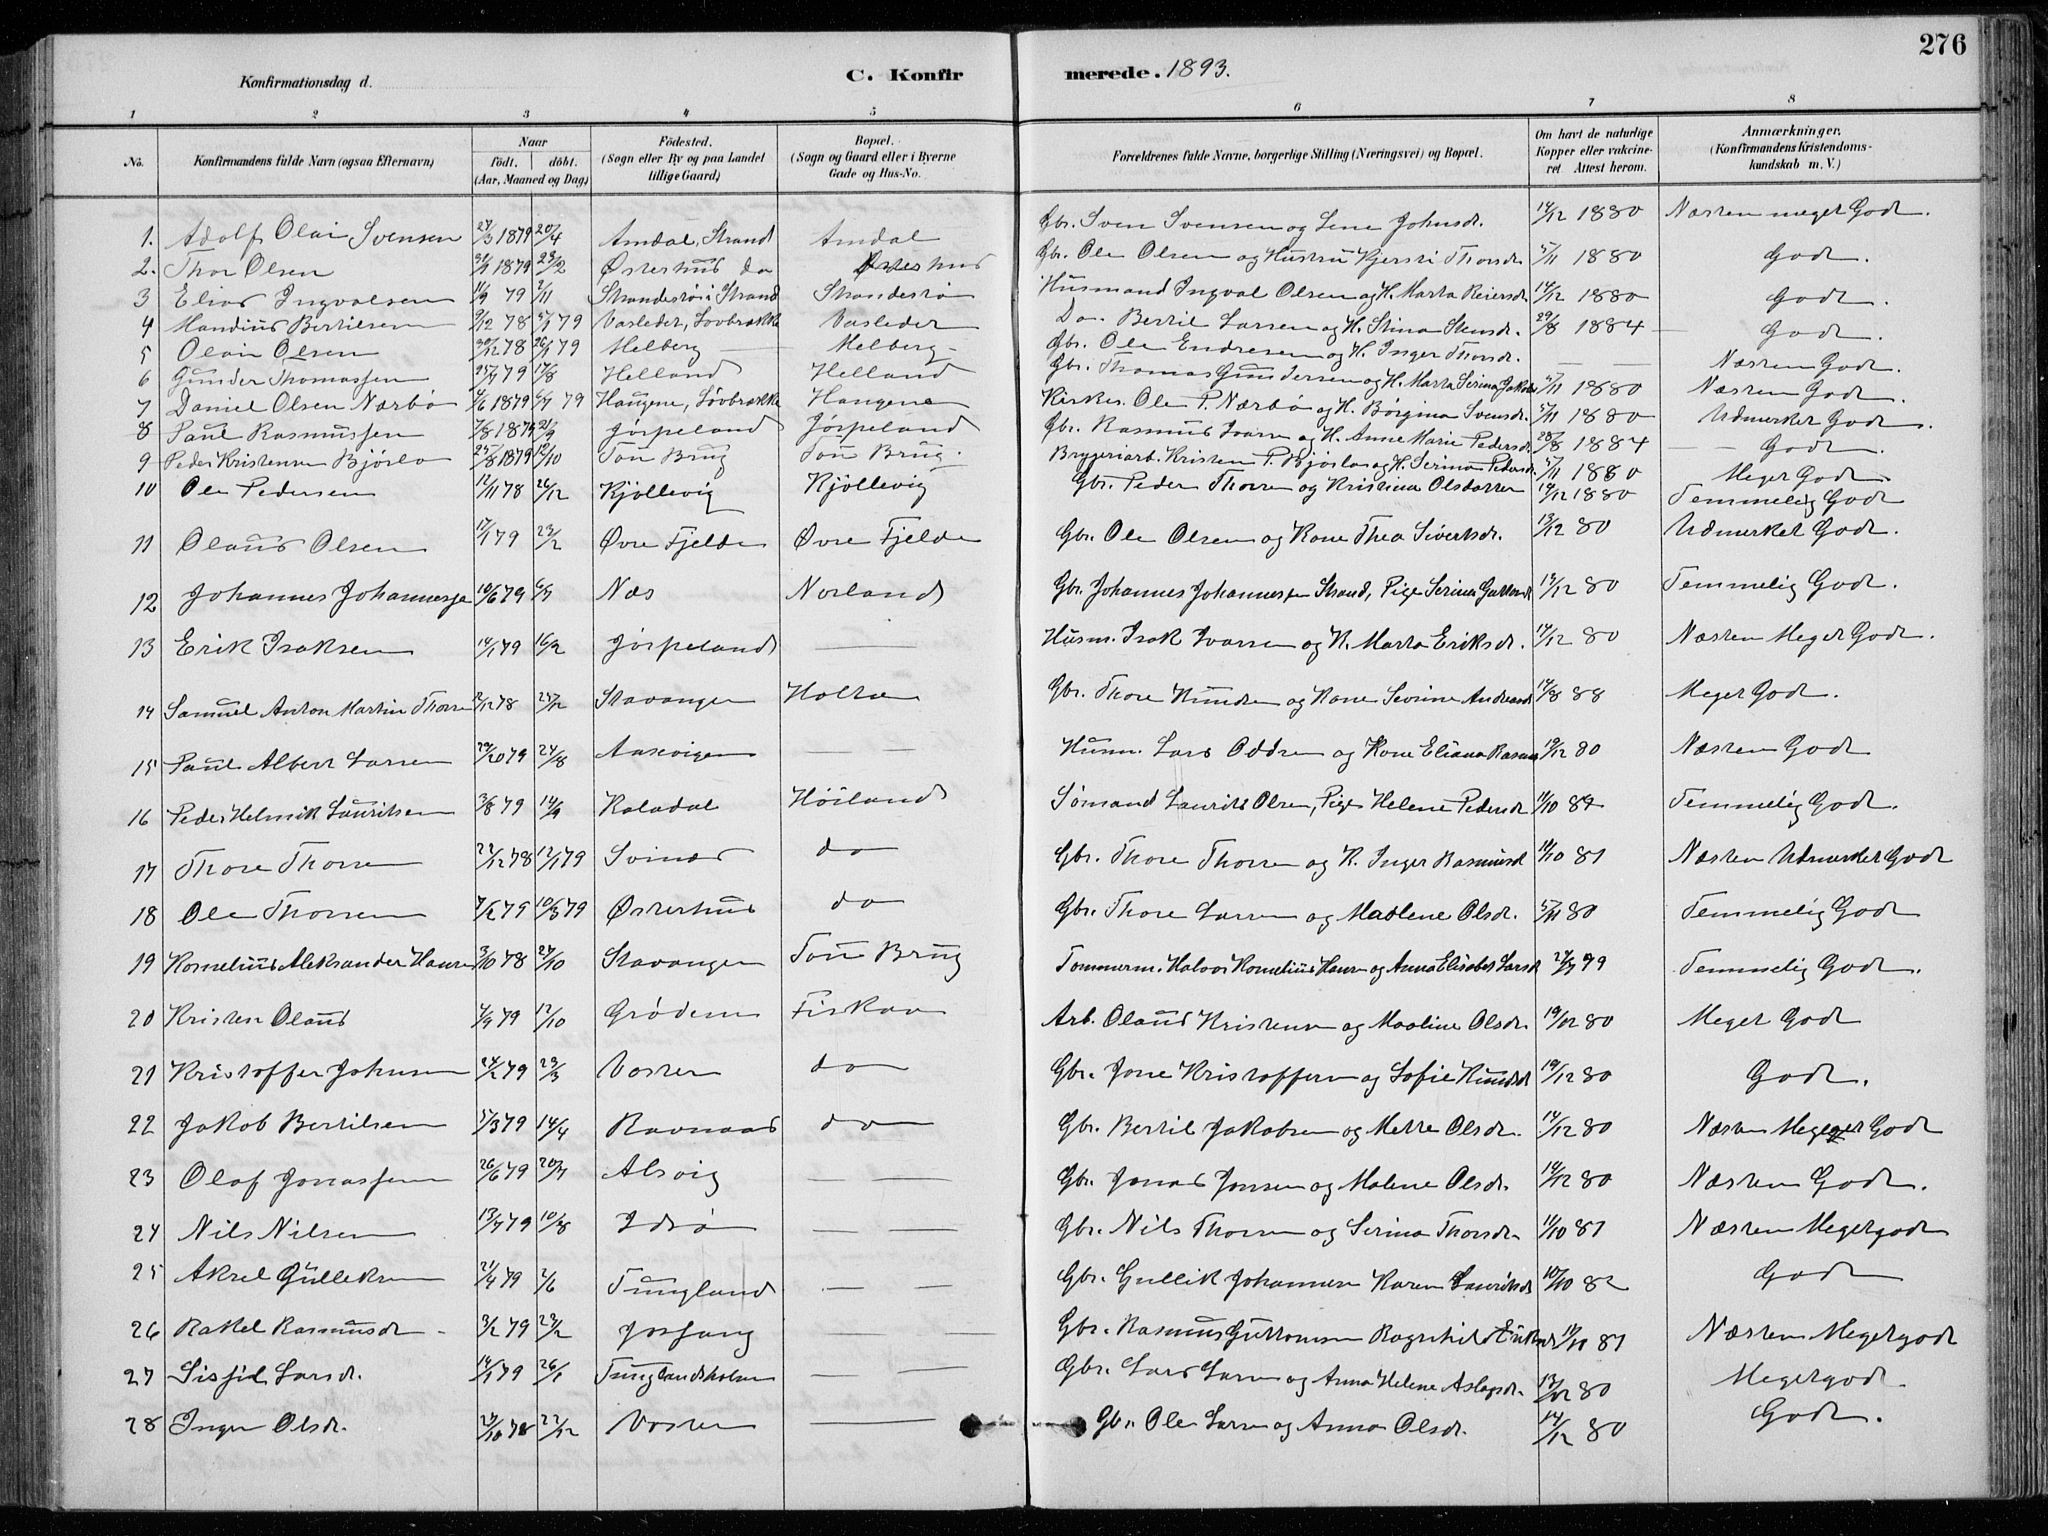 276
Konfirmationsdag d. C. Konfirmerede. 1893.
1 2 3 4 5 6 7 8
No. Konfirmandens fulde Navn (ogsaa Efternavn) Naar födt. döbt. (Aar, Maaned og Dag.) Födested. (Sogn eller By og paa Landet tillige Gaard.) Bopæl. (Sogn og Gaard eller i Byerne Gade og Hus-No. Forældrenes fulde Navne, borgerlige Stilling (Næringsvei) og Bopæl. Om havt de naturlige Kopper eller vakcineret Attest herom. Anmærkninger. (Konfirmandens Kristendomskundskab m. V.)
1. Adolf Olai Svensen 27/3 1879 20/4 Amdal, Strand Amdal Gbr. Sven Svensen og Lene Johnsdr. 14/12 1880 Næsten meget Godt.
2. Thor Olsen 31/1 1879 23/2 Østerhus do Østerhus Gbr. Ole Olsen og Hustru Kjersti Thorsdr. 5/11 1880 Godt.
3 Elias Ingvalsen 11/9 79 2/11 Strandestøi Strand Strandestøn Husmand Ingval Olsen og H. Marta Reiersdr. 14/12 1880 Godt.
4 Mandius Bertilsen 9/12 78 5/1 79 Vasleder, Løvbrække Vasleder Do. Bertil Larsen og H. Stina Stensdr. 29/8 1884 Godt.
5 Olai Olsen 30/12 78 26/1 79 Melberg Melberg Gbr. Ole Endresen og H. Inger Thorsdr. — — Næsten Godt.
6 Gunder Thomassen 25/7 79 17/8 Helland Helland Gbr. Thomas Gundersen og H. Marta Serina Jakobs 5/11 1880 Næsten Godt.
7 Daniel Olsen Nærbø 4/6 1879 6/7 79 Haugene, Løvbrække Haugene Kirkes. Ole P. Nærbø og H. Børgina Svensdr. 5/11 1880 Udmerket Godt.
8 Paul Rasmussen 7/8 1879 21/9 Jørpeland Jørpeland Gbr. Rasmus Ivarsen og H. Anne Marie Pedersdr. 28/8 1884 Godt.
9 Peder Kristensen Bjørlo 25/8 1879 12/10 Tou Brug Tou Brug. Bryggeriarb. Kristen P. Bjørlo og H. Serina Pedersdr. 5/11 1880 Meget Godt.
10 Ole Pedersen 12/11 78 26/12 Kjøllevig Kjøllevig Gbr. Peder Thorsen og Kristina Olsdatter 14/12 1880 Temmelig Godt
11 Olaus Olsen 17/1 79 23/2 Øvre Fjelde Øvre Fjelde Gbr. Ole Olsen og Kone Thea Sivertsdr. 13/12 80 Udmerket Godt.
12 Johannes Johannesse 10/6 79 6/7 Næs Norland Gbr. Johannes Johannesen Strand, Pige Serina 13/12 80 Temmelig Godt.
13 Erik Isaksen 14/1 79 16/2 Jørpeland — — Husm. Isak Ivarsen og K. Marta Eriksdr. 14/12 80 Næsten Meget Godt.
14 Samuel Anton Martin Thorsen 2/12 78 25/12 Stavanger Holta Gbr. Thore Knudsen og Kone Severine Andreasd 14/8 88 Meget Godt.
15 Paul Albert Larsen 24/8 Aasevigen — — Husm. Lars Oddsen og Kone Eliana Rasmus 19/12 80 Næsten Godt
16 Peder Helmik Lauritsen 3/8 79 14/9 Koladal Høiland Sömand Laurits Olsen, Pige Helene Pedersdr 11/10 87 Temmelig Godt.
17 Thore Thorsen 22/12 78 12/1 79 Svines do Gbr. Thore Thorsen og K. Inger Rasmusd 11/10 81 Næsten Udmerket Godt
18 Ole Thorsen 7/2 79 10/3 79 Østerhus do Gbr. Thore Larsen og Madlene Olsdr. 5/11 80 Temmelig Godt
19 Kornelius Aleksander Hansen 3/10 78 27/10 Stavanger Tou Brug Tommerm. Halvor Kornelius Hansen og Anna Elisabet Larsd 99 Temmelig Godt.
20 Kristen Olaus 4/9 79 12/10 Grødem Fiskaa Arb. Olaus Kristensen og Maline Olsdr. 19/12 80 Meget Godt
21 Kristoffer Johnsen 24/2 79 23/3 Vostre do Gbr. Jone Kristoffersen og Sofie Knudsd 19/12 80 Godt.
22 Jakob Bertilsen 5/3 79 14/4 Ravnaas do Gbr. Bertil Jakobsen og Mette Olsdr. 14/12 80 Næsten Meget Godt
23 Olaf Jonassen 26/6 79 20/7 Alsvig — — Gbr. Jonas Jonsen og Malene Olsdr. 14/12 80 Næsten Godt.
24 Nils Nilsen 13/7 79 10/8 Idsø — — Gbr. Nils Thorsen og Serina Thorsdr. 11/10 81 Næsten Megetgodt
25 Aksel Gulleksen 21/4 79 2/6 Tungland — — Gbr. Gullik Johannesen Karen Lauritsd 10/10 82 Godt
26 Rakel Rasmusdr 3/2 79 23/2 Jøsfang — — Gbr. Rasmus Guttormsen Ragnhild Eriksd 11/10 81 Næsten Megetgodt
27 Sissil Larsdr. 14/1 79 26/1 Tunglandsholm — — Gbr. Lars Larsen og Anna Helene Aslagsdr. 13/12 80 Megetgodt
28 Inger Olsdr. 23/10 78 22/12 Vostre — Gbr. Ole Larsen og Anna Olsdr. 14/12 80 Godt.